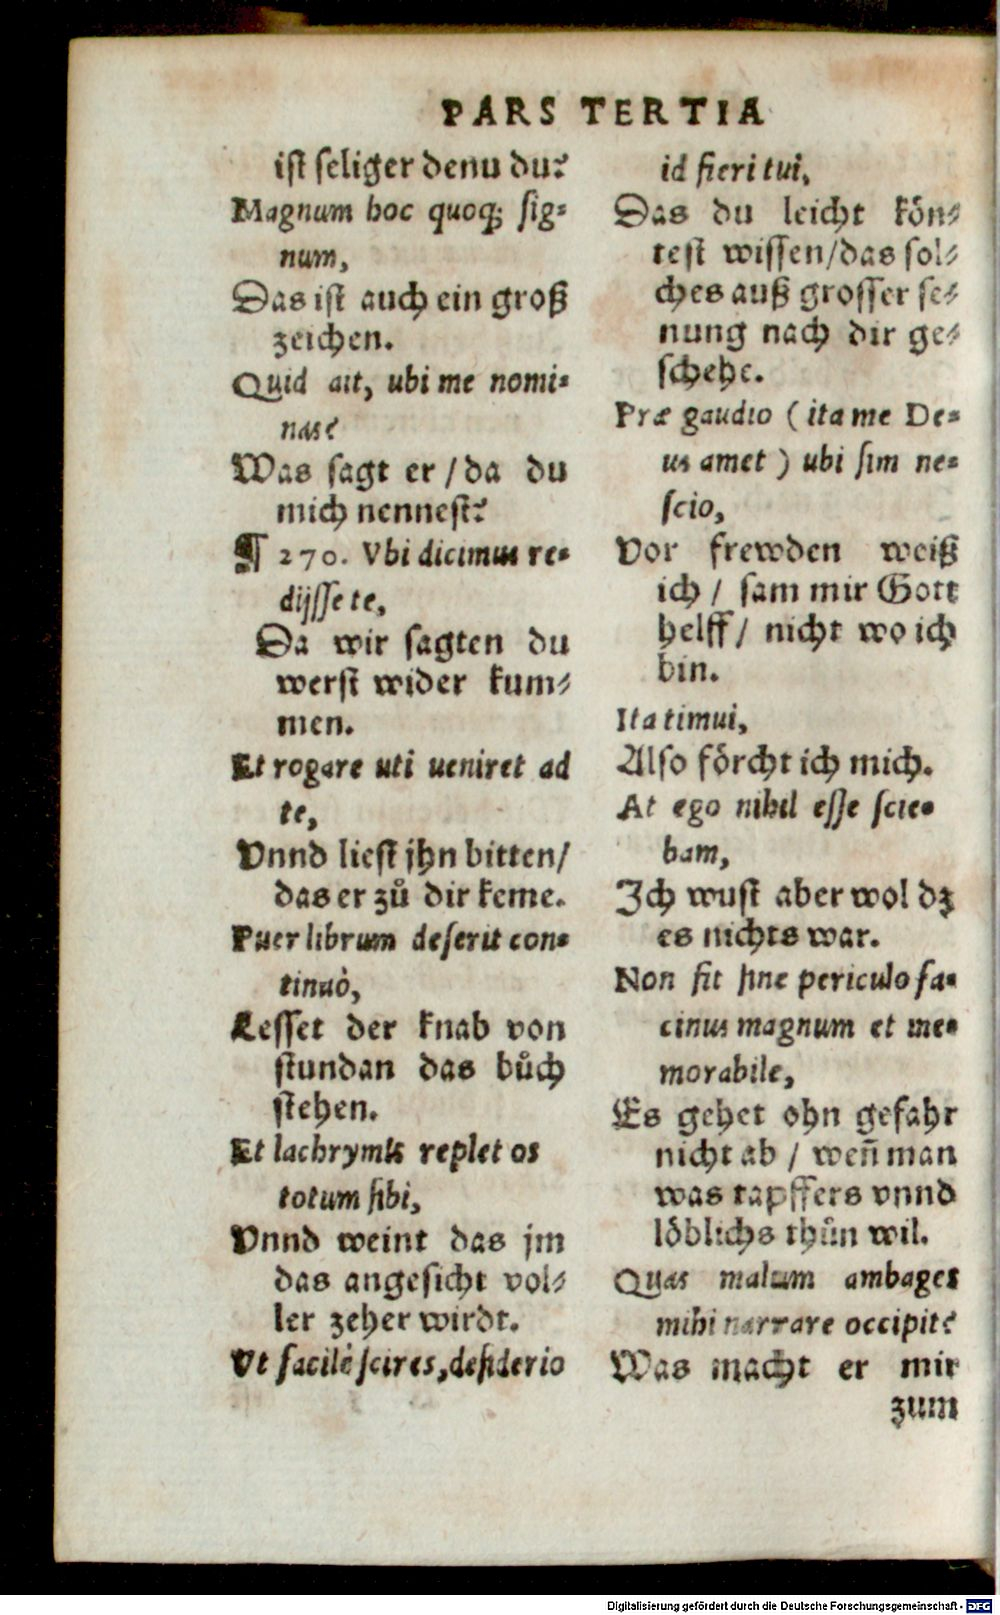 PARS TERTIA
ist seliger denu du?
Magnum hoc quoq; sig-
num,
Das ist auch ein groß
zeichen.
Quid ait, ubi me nomi-
nas?
Was sagt er / da du
mich nennest?
¶ 270. Vbi dicimus re-
dijsse te,
Da wir sagten du
werst wider kum-
men.
Et rogare uti ueniret ad
te,
Vnnd liest jhn bitten /
das er zů dir keme.
Puer librum deserit con-
tinuò,
Lesset der knab von
stundan das bůch
stehen.
Et lachrymis replet os
totum sibi,
Vnnd weint das jm
das angesicht vol-
ler zeher wirdt.
Vt facilè scires, desiderio
id fieri tui,
Das du leicht kön-
test wissen / das sol-
ches auß grosser se-
nung nach dir ge-
schehe.
Præ gaudio ( ita me De-
us amet ) ubi sim ne-
scio,
Vor frewden weiß
ich / sam mir Gott
helff / nicht wo ich
bin.
Ita timui,
Also förcht ich mich.
At ego nihil esse scie-
bam,
Ich wust aber wol dz
es nichts war.
Non fit sine periculo fa-
cinus magnum et me-
morabile,
Es gehet ohn gefahr
nicht ab / weñ man
was tapffers vnnd
löblichs thůn wil.
Quas malum ambages
mihi narrare occipit?
Was macht er mir
zum
Digitalisierung gefördert durch die Deutsche Forschungsgemeinschaft - DFG